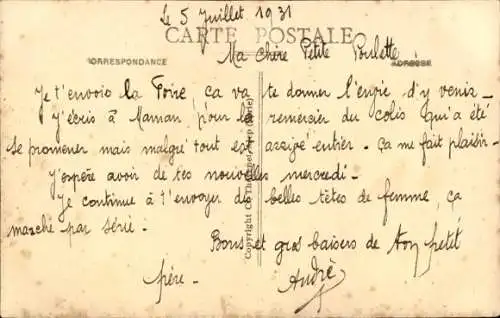 Le 5 Juillet 1931
CARTE POSTALE
Ma Chère Petite Poulette
CORRESPONDANCE
ADRESSE
Je t'envois la Foire, ça va te donner l'envie d'y venir -
J'écris à Maman pour la remercier du colis qu'a été
se promener mais malgré tout est arrivé entier. Ça me fait plaisir -
J'espère avoir de tes nouvelles mercredi -
Je continue à t'envoyer de belles têtes de femme, ça
marche par série -
Bons et gros baisers de ton petit
frère - André
Copyright